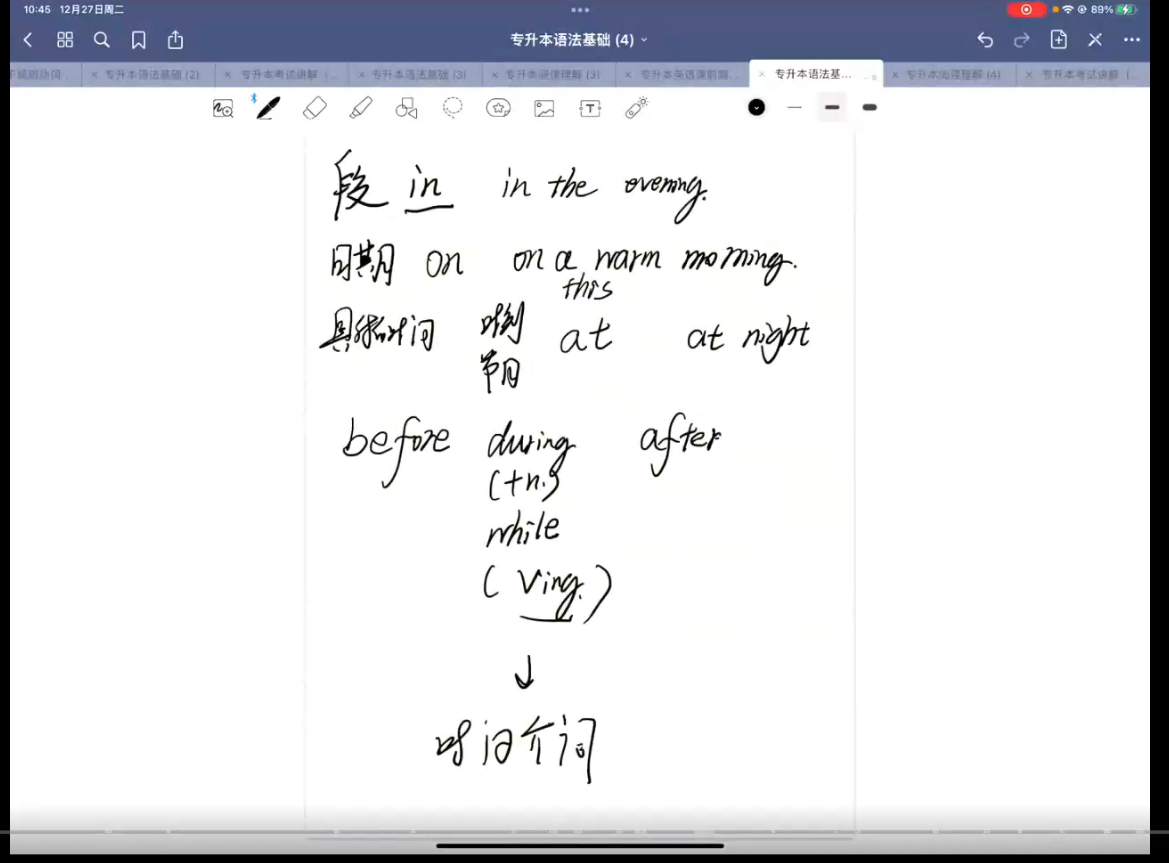 10:45 12月27日周二
89%
专升本语法基础 (4)
专升本语法基础 (2) 专升本考试讲解 (... 专升本语法基础 (3) 专升本阅读理解 (3) 专升本英语课前测... 专升本语法基... 专升本阅读理解 (4) 专升本考试讲解 (...
段 in in the evening.
日期 on on a warm morning.
this
具体时间 时刻 at at night
节日
before during after
(+n.)
while
(Ving.)
↓
时间介词